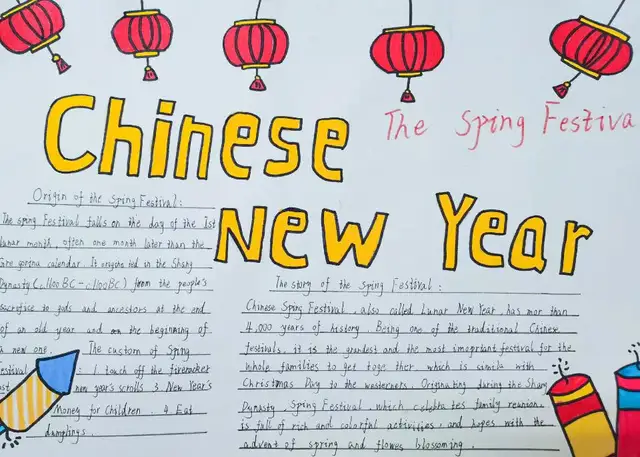 Chinese
The Sping Festiva
New Year
Origin of the Sping Festival:
The sping Festival falls on the day of the 1st
lunar month, often one month later than the
Gre gorena calendar. It origina ted in the Shang
Dynasty (c.1100 BC-c.1100BC) from the people's
sacrifice to gods and ancestors at the end
of an old year and on the beginning of
a new one. The custom of Sping
estival : 1. touch off the firecracker
new year's scrolls 3. New Year's
Money for Children. 4. Eat
dumplings.
The story of the Sping Festival:
Chinese Sping Festival, also called Lunar New Year, has mor than
4,000 years of history. Being one of the traditional Chinese
festivals, it is the grandest and the most imoprtant festival for the
whole families to get toge ther, which is simila with
Christmas Day to the westerners. Originating during the Shang
Dynasty, Sping Festival, which celebra tes family reunion,
is full of rich and colorful activities, and hopes with the
advent of spring and flowes blossoming.